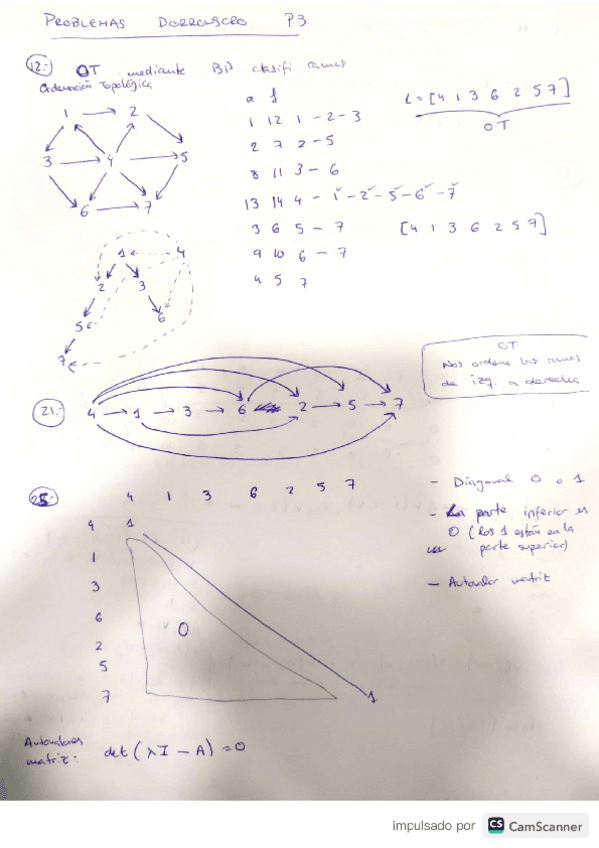 PROBLEMAS DORRONSORO P3
12.- OT mediante BP clasifi. ramas
Ordenación Topológica
a f
1 12 1 - 2 - 3
2 7 2 - 5
8 11 3 - 6
13 14 4 - 1 - 2 - 5 - 6 - 7
3 6 5 - 7
9 10 6 - 7
4 5 7
L = [4 1 3 6 2 5 7]
OT
[4 1 3 6 2 5 7]
1 2
3 4 5
6 7
1 4
2 3
5 6
7
OT
Nos ordena las ramas
de izq. a derecha
21.- 4 1 3 6 2 5 7
25.- 4 1 3 6 2 5 7
4 1
1
3
6
2
5
7 1
0
- Diagonal 0 o 1
- La parte inferior es
0 (los 1 están en la
parte superior)
- Autovalor matriz
Autovalores
matriz: det (λI - A) = 0
impulsado por CS CamScanner